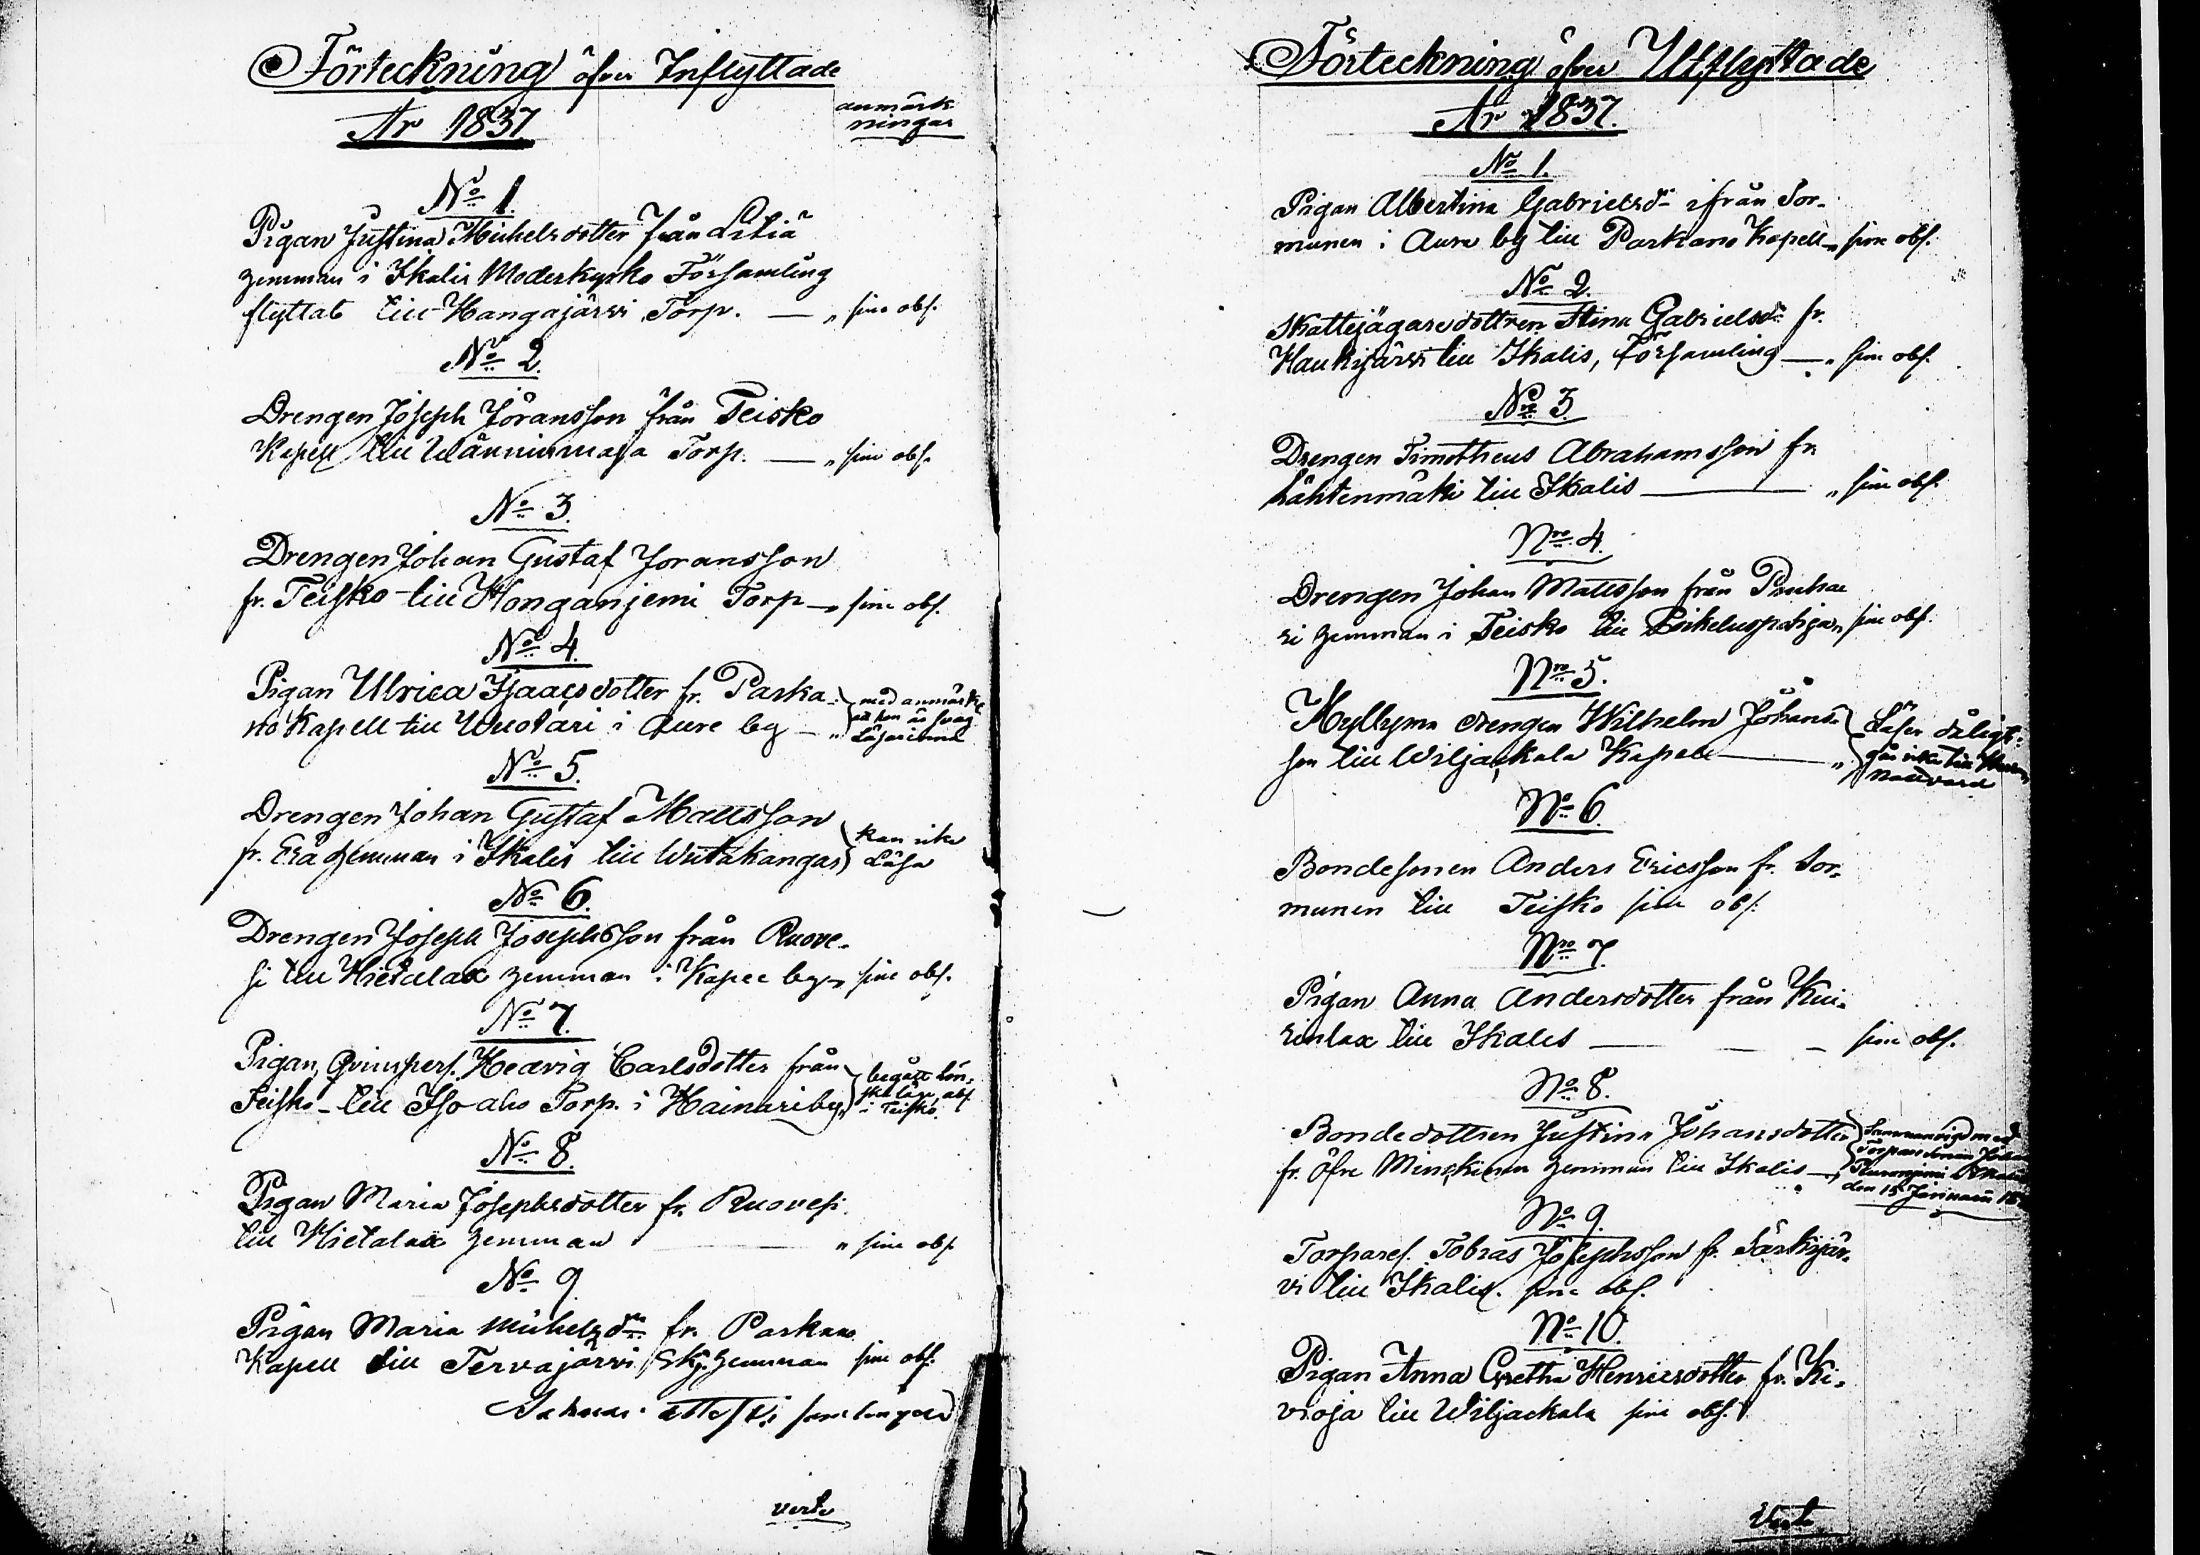 Förteckning öfver Inflyttade
anmärk
ningar
År 1837
No 1.
Pigan Justina Michelsdotter från Litiä
hemman i Ikalis Moderkyrko Församling
flyttat till Kangajärvi Torp. — „ sine obs.
No 2.
Drengen Joseph Jöransson från Teisko
Kapell till Wänninmaja Torp. — „ sine obs.
No 3.
Drengen Johan Gustaf Joransson
fr. Teisko till Honganjemi Torp — „ sine obs.
No 4.
Pigan Ulrica Isaacsdotter fr. Parka-
no Kapell till Wuotari i Aure by — „
med anmärk
att hon är svag
Läsarinna
No 5.
Drengen Johan Gustaf Mattsson
fr. Erä hemman i Ikalis till Weitakangas
kan icke
Läsa
No 6.
Drengen Joseph Josephsson från Ruove-
si till Hietalax hemman i Kapee by „ sine obs.
No 7.
Pigan, Qvinspers. Hedvig Carlsdotter från
Teisko till Iso-aho Torp. i Hainariby „
begått lön-
ska läge, abs
i Teisko.
No 8.
Pigan Maria Josephsdotter fr. Ruovesi
till Hietalax hemman „ sine obs.
No 9.
Pigan Maria Michelsdr fr. Parkano
Kapell till Tervajärvi hemman sine obs.
verte
Förteckning öfver Utflyttade
År 1837.
No 1.
Pigan Albertina Gabrielsdr ifrån Sor-
munen i Aure by till Parkano Kapell „ sine obs.
No 2.
Skattejägaredottren Stina Gabrielsdr fr.
Haukijärvi till Ikalis, Församling — „ sine obs.
No 3.
Drengen Timotheus Abrahamsson fr.
Lähtenmäki till Ikalis — „ sine obs.
Nro 4.
Drengen Johan Mattsson från
ri hemman i Teisko till sine obs.
Nro 5.
Kyllyma drengen Wilhelm Johans-
son till Wiljackala Kapell — „
Läser dåligt:
går icke till
Nattvard
No 6.
Bondesonen Anders Ericsson fr. Sor-
munen till Teisko sine obs.
Nro 7.
Pigan Anna Andersdotter från Kui-
rinlax till Ikalis — — — sine obs.
No 8.
Bondedottren Justina Johansdotter
fr. Öfre Minckinen hemman till Ikalis — „
Sammanvigd med
Torparesonen Johan
den 15 Januarii
No 9.
Torpares. Tobias Josephsson fr. Särkijär-
vi till Ikalis. sine obs.
No 10.
Pigan Anna Gretha Henricsdotter fr. Ki-
vioja till Wiljackala sine obs.
Verte